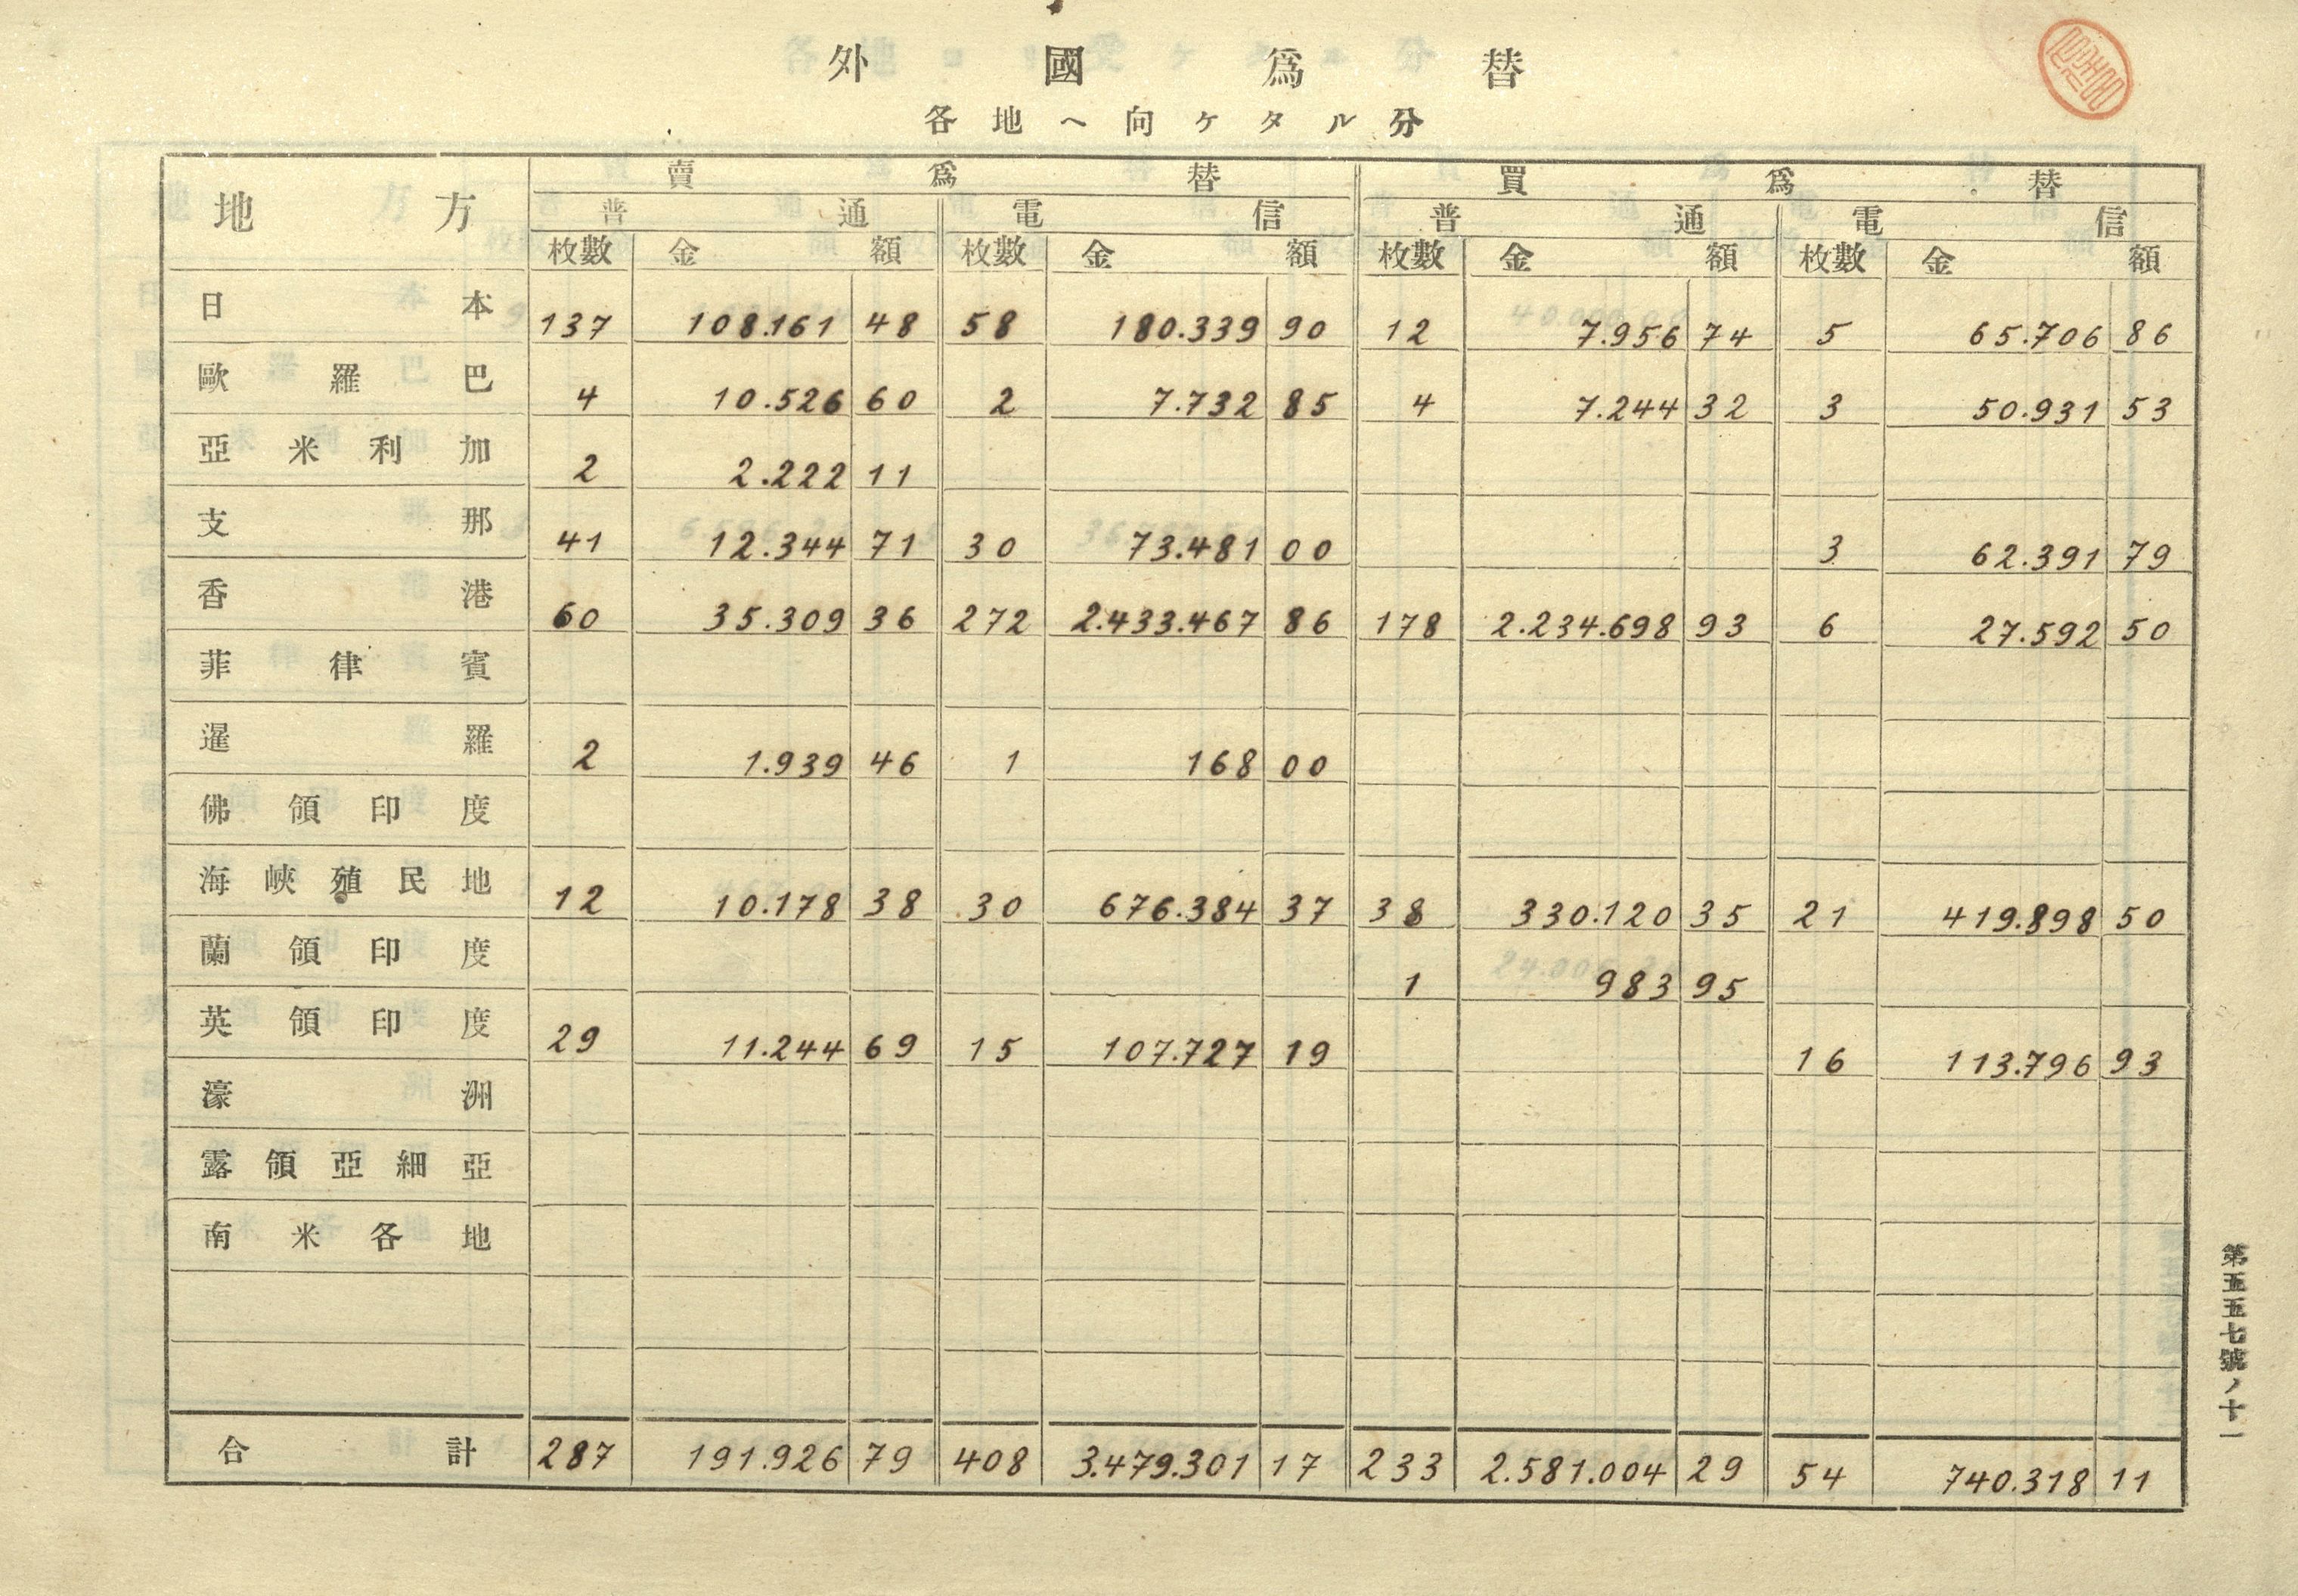 外國爲替
各地ヘ向ケタル分
地方 賣爲替 買爲替
普通 電信 普通 電信
枚數 金額 枚數 金額 枚數 金額 枚數 金額
日本 137 108.161 48 58 180.339 90 12 7.956 74 5 65.706 86
歐羅巴 4 10.526 60 2 7.732 85 4 7.244 32 3 50.931 53
亞米利加 2 2.222 11
支那 41 12.344 71 30 73.481 00 3 62.391 79
香港 60 35.309 36 272 2.433.467 86 178 2.234.698 93 6 27.592 50
菲律賓
暹羅 2 1.939 46 1 168 00
佛領印度
海峽殖民地 12 10.178 38 30 676.384 37 38 330.120 35 21 419.898 50
蘭領印度 1 983 95
英領印度 29 11.244 69 15 107.727 19 16 113.796 93
濠洲
露領亞細亞
南米各地
合計 287 191.926 79 408 3.479.301 17 233 2.581.004 29 54 740.318 11
第五五七號ノ十一